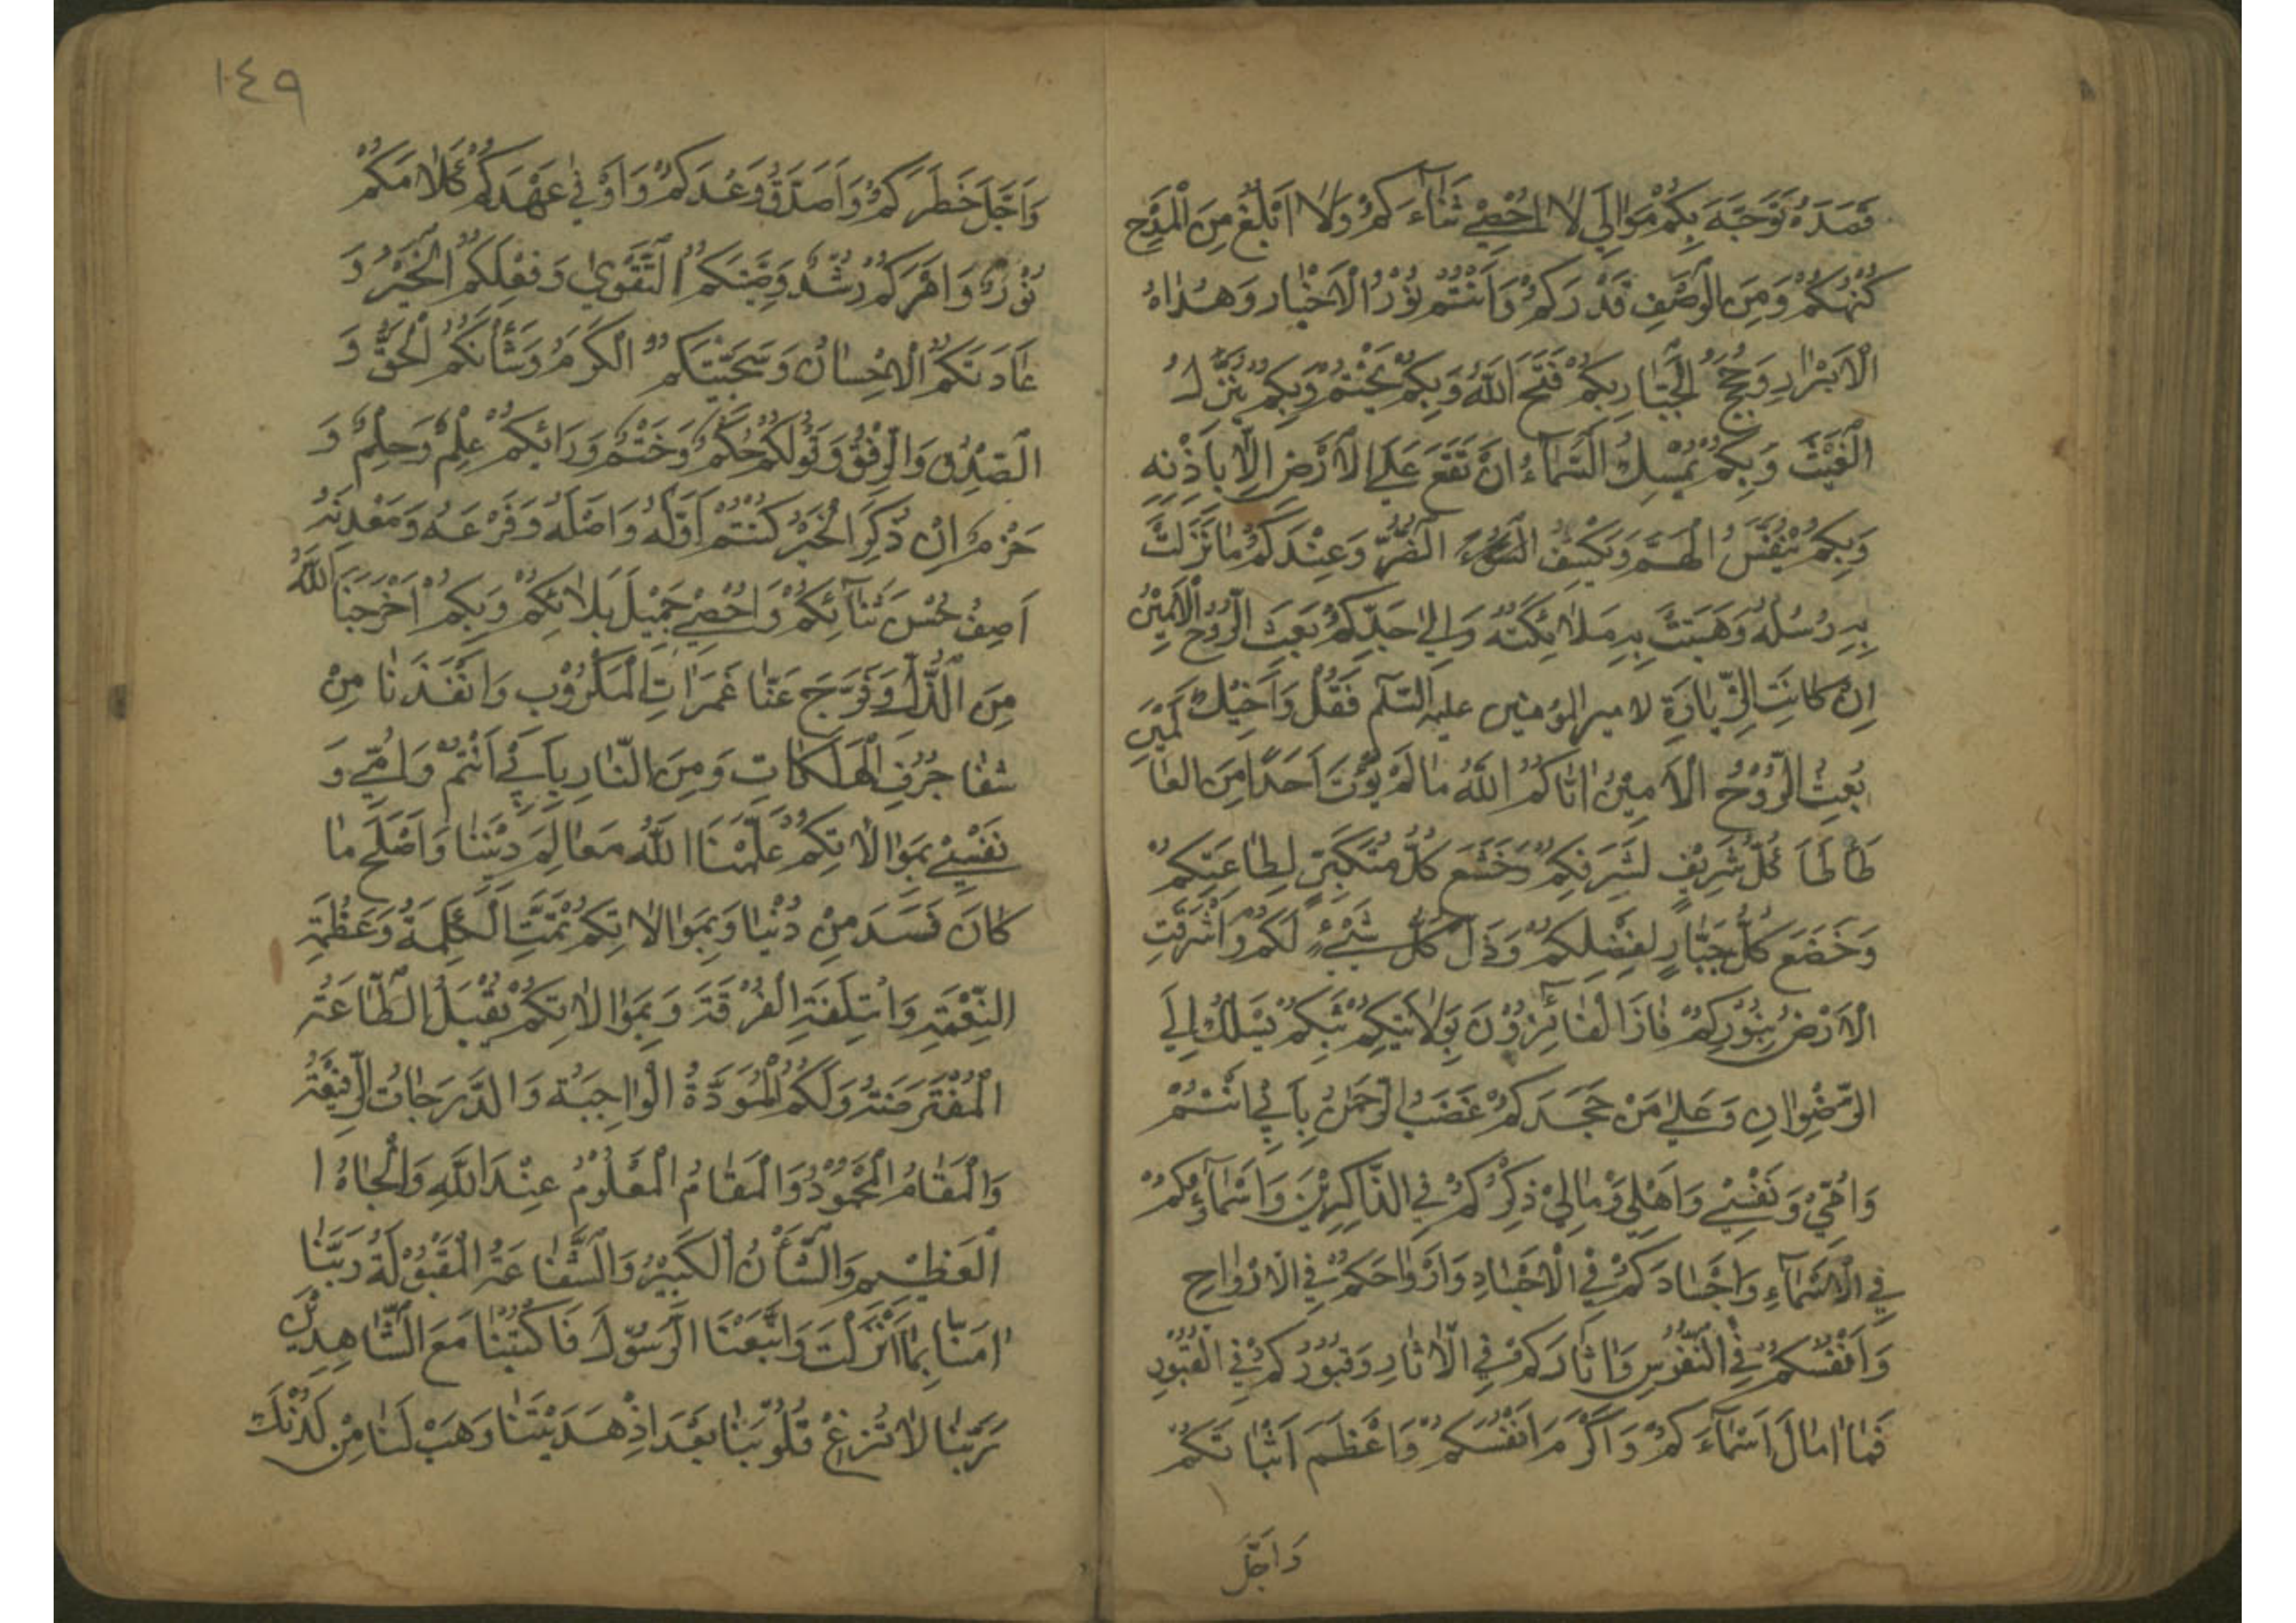 قَصَدَهُ تَوَجَّهَ بِكُمْ مَوَالِيَّ لَا اُحْصِيْ ثَنَآءَكُمْ وَلَا اَبْلُغُ مِنَ الْمَدْحِ
كُنْهَكُمْ وَمِنَ الْوَصْفِ قَدْرَكُمْ وَاَنْتُمْ نُوْرُ الْاَخْيَارِ وَهُدَاهُ
الْاَبْرَارِ وَحُجَجُ الْجَبَّارِ بِكُمْ فَتَحَ اللّٰهُ وَبِكُمْ يَخْتِمُ وَبِكُمْ يُنَزِّلُ
الْغَيْثَ وَبِكُمْ يُمْسِكُ السَّمَآءَ اَنْ تَقَعَ عَلَى الْاَرْضِ اِلَّا بِاِذْنِهٖ
وَبِكُمْ يُنَفِّسُ الْهَمَّ وَيَكْشِفُ الضُّرَّ وَعِنْدَكُمْ مَا نَزَلَتْ
بِهِ رُسُلُهُ وَهَبَتَتْ بِهِ مَلَائِكَتُهُ وَاِلٰى جَدِّكُمْ بُعِثَ الرُّوْحُ الْاَمِيْنُ
اِنْ كَانَتِ الزِّيَارَةِ لامير المؤمنين عليه السّلم فَقُلْ وَاَخِيْكَ
بُعِثَ الرُّوْحُ الْاَمِيْنُ اٰتَاكُمُ اللّٰهُ مَا لَمْ يُؤْتَ اَحَدًا مِنَ الْعَالَمِيْنَ
طَأطَأ كُلُّ شَرِيْفٍ لِشَرَفِكُمْ وَخَشَعَ كُلُّ مُتَكَبِّرٍ لِطَاعَتِكُمْ
وَخَضَعَ كُلُّ جَبَّارٍ لِفَضْلِكُمْ وَذَلَّ كُلُّ شَيْءٍ لَكُمْ وَاَشْرَقَتِ
الْاَرْضُ بِنُوْرِكُمْ فَازَ الْفَائِزُوْنَ بِوِلَايَتِكُمْ بِكُمْ يُسْلَكُ اِلَى
الرِّضْوَانِ وَعَلٰى مَنْ جَحَدَكُمْ غَضَبُ الرَّحْمٰنِ بِاَبِيْ اَنْتُمْ
وَاُمِّيْ وَنَفْسِيْ وَاَهْلِيْ وَمَالِيْ ذِكْرُكُمْ فِي الذَّاكِرِيْنَ وَاَسْمَآؤُكُمْ
فِي الْاَسْمَآءِ وَاَجْسَادَكُمْ فِي الْاَجْسَادِ وَاَرْوَاحَكُمْ فِي الْاَرْوَاحِ
وَاَنْفُسُكُمْ فِي النُّفُوْسِ وَاٰثَارَكُمْ فِي الْاٰثَارِ وَقُبُوْرُكُمْ فِي الْقُبُوْرِ
فَمَا اَسْمَآءَكُمْ وَاَكْرَمَ اَنْفُسَكُمْ وَاَعْظَمَ
وَاَجَلَّ
١٤٩
وَاَجَلَّ خَطَرَكُمْ وَاَصْدَقَ وَعْدَكُمْ وَاَوْفٰى عَهْدَكُمْ كَلَامَكُمْ
نُوْرٌ وَاَمْرَكُمْ رُشْدٌ وَصِيَّتَكُمُ التَّقْوٰى وَفِعْلَكُمُ الْخَيْرُ وَ
عَادَتَكُمُ الْاِحْسَانُ وَسَجِيَّتَكُمُ الْكَرَمُ وَشَأْنَكُمُ الْحَقُّ وَ
الصِّدْقُ وَالرِّفْقُ وَقَوْلَكُمْ حُكْمٌ وَحَتْمٌ وَرَائَكُمْ عِلْمٌ وَحِلْمٌ وَ
حَزْمٌ اِنْ ذُكِرَ الْخَيْرُ كُنْتُمْ اَوَّلَهُ وَاَصْلَهُ وَفَرْعَهُ وَمَعْدِنَهُ
اَصِفُ حُسْنَ ثَنَآئِكُمْ وَاُحْصِيْ جَمِيْلَ بَلَائِكُمْ وَبِكُمْ اَخْرَجَنَا اللّٰهُ
مِنَ الذُّلِّ وَفَرَّجَ عَنَّا غَمَرَاتِ الْمَكْرُوْبِ وَاَنْقَذَنَا مِنْ
شَفَا جُرُفِ الْهَلَكَاتِ وَمِنَ النَّارِ بِاَبِيْ اَنْتُمْ وَاُمِّيْ وَ
نَفْسِيْ بِمُوَالَاتِكُمْ عَلَّمَنَا اللّٰهُ مَعَالِمَ دِيْنِنَا وَاَصْلَحَ مَا
كَانَ فَسَدَ مِنْ دُنْيَا وَبِمُوَالَاتِكُمْ تَمَّتِ الْكَلِمَةُ وَعَظُمَةِ
النِّعْمَةِ وَائْتَلَفَةِ الْفُرْقَةَ وَبِمُوَالَاتِكُمْ يُقْبَلُ الطَّاعَةُ
الْمُفْتَرَضَةُ وَلَكُمُ الْمَوَدَّةُ الْوَاجِبَةُ وَالدَّرَجَاتُ الرَّفِيْعَةُ
وَالْمَقَامُ الْمَحْمُوْدُ وَالْمَقَامُ الْمَعْلُوْمُ عِنْدَ اللّٰهِ وَالْجَاهُ ا
الْعَظِيْمِ وَالشَّأْنُ الْكَبِيْرُ وَالشَّفَاعَةُ الْمَقْبُوْلَةُ رَبَّنَا
اٰمَنَّا بِمَا اَنْزَلْتَ وَاتَّبَعْنَا الرَّسُوْلَ فَاكْتُبْنَا مَعَ الشَّاهِدِيْنَ
رَبَّنَا لَا تُزِغْ قُلُوْبَنَا بَعْدَ اِذْ هَدَيْتَنَا وَهَبْ لَنَا مِنْ لَدُنْكَ